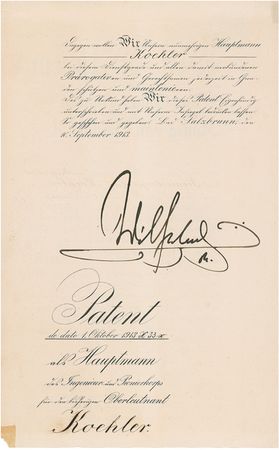 Dagegen wollen Wir Unsern nunmehrigen Hauptmann
Koehler
bei diesem Dienstgrade und allen damit verbundenen
Prärogativen und Gerechtsamen jederzeit in Gna-
den schützen und maintenieren.
Des zu Urkund haben Wir dieses Patent Eigenhändig
unterschrieben und mit Unserm Insiegel bedrucken lassen.
So geschehen und gegeben Bad Salzbrunn, den
10. September 1913.
Wilhelm
R.
Patent
de dato 1. Oktober 1913
als Hauptmann
des Ingenieur und Pionierkorps
für den bisherigen Oberleutnant
Koehler.